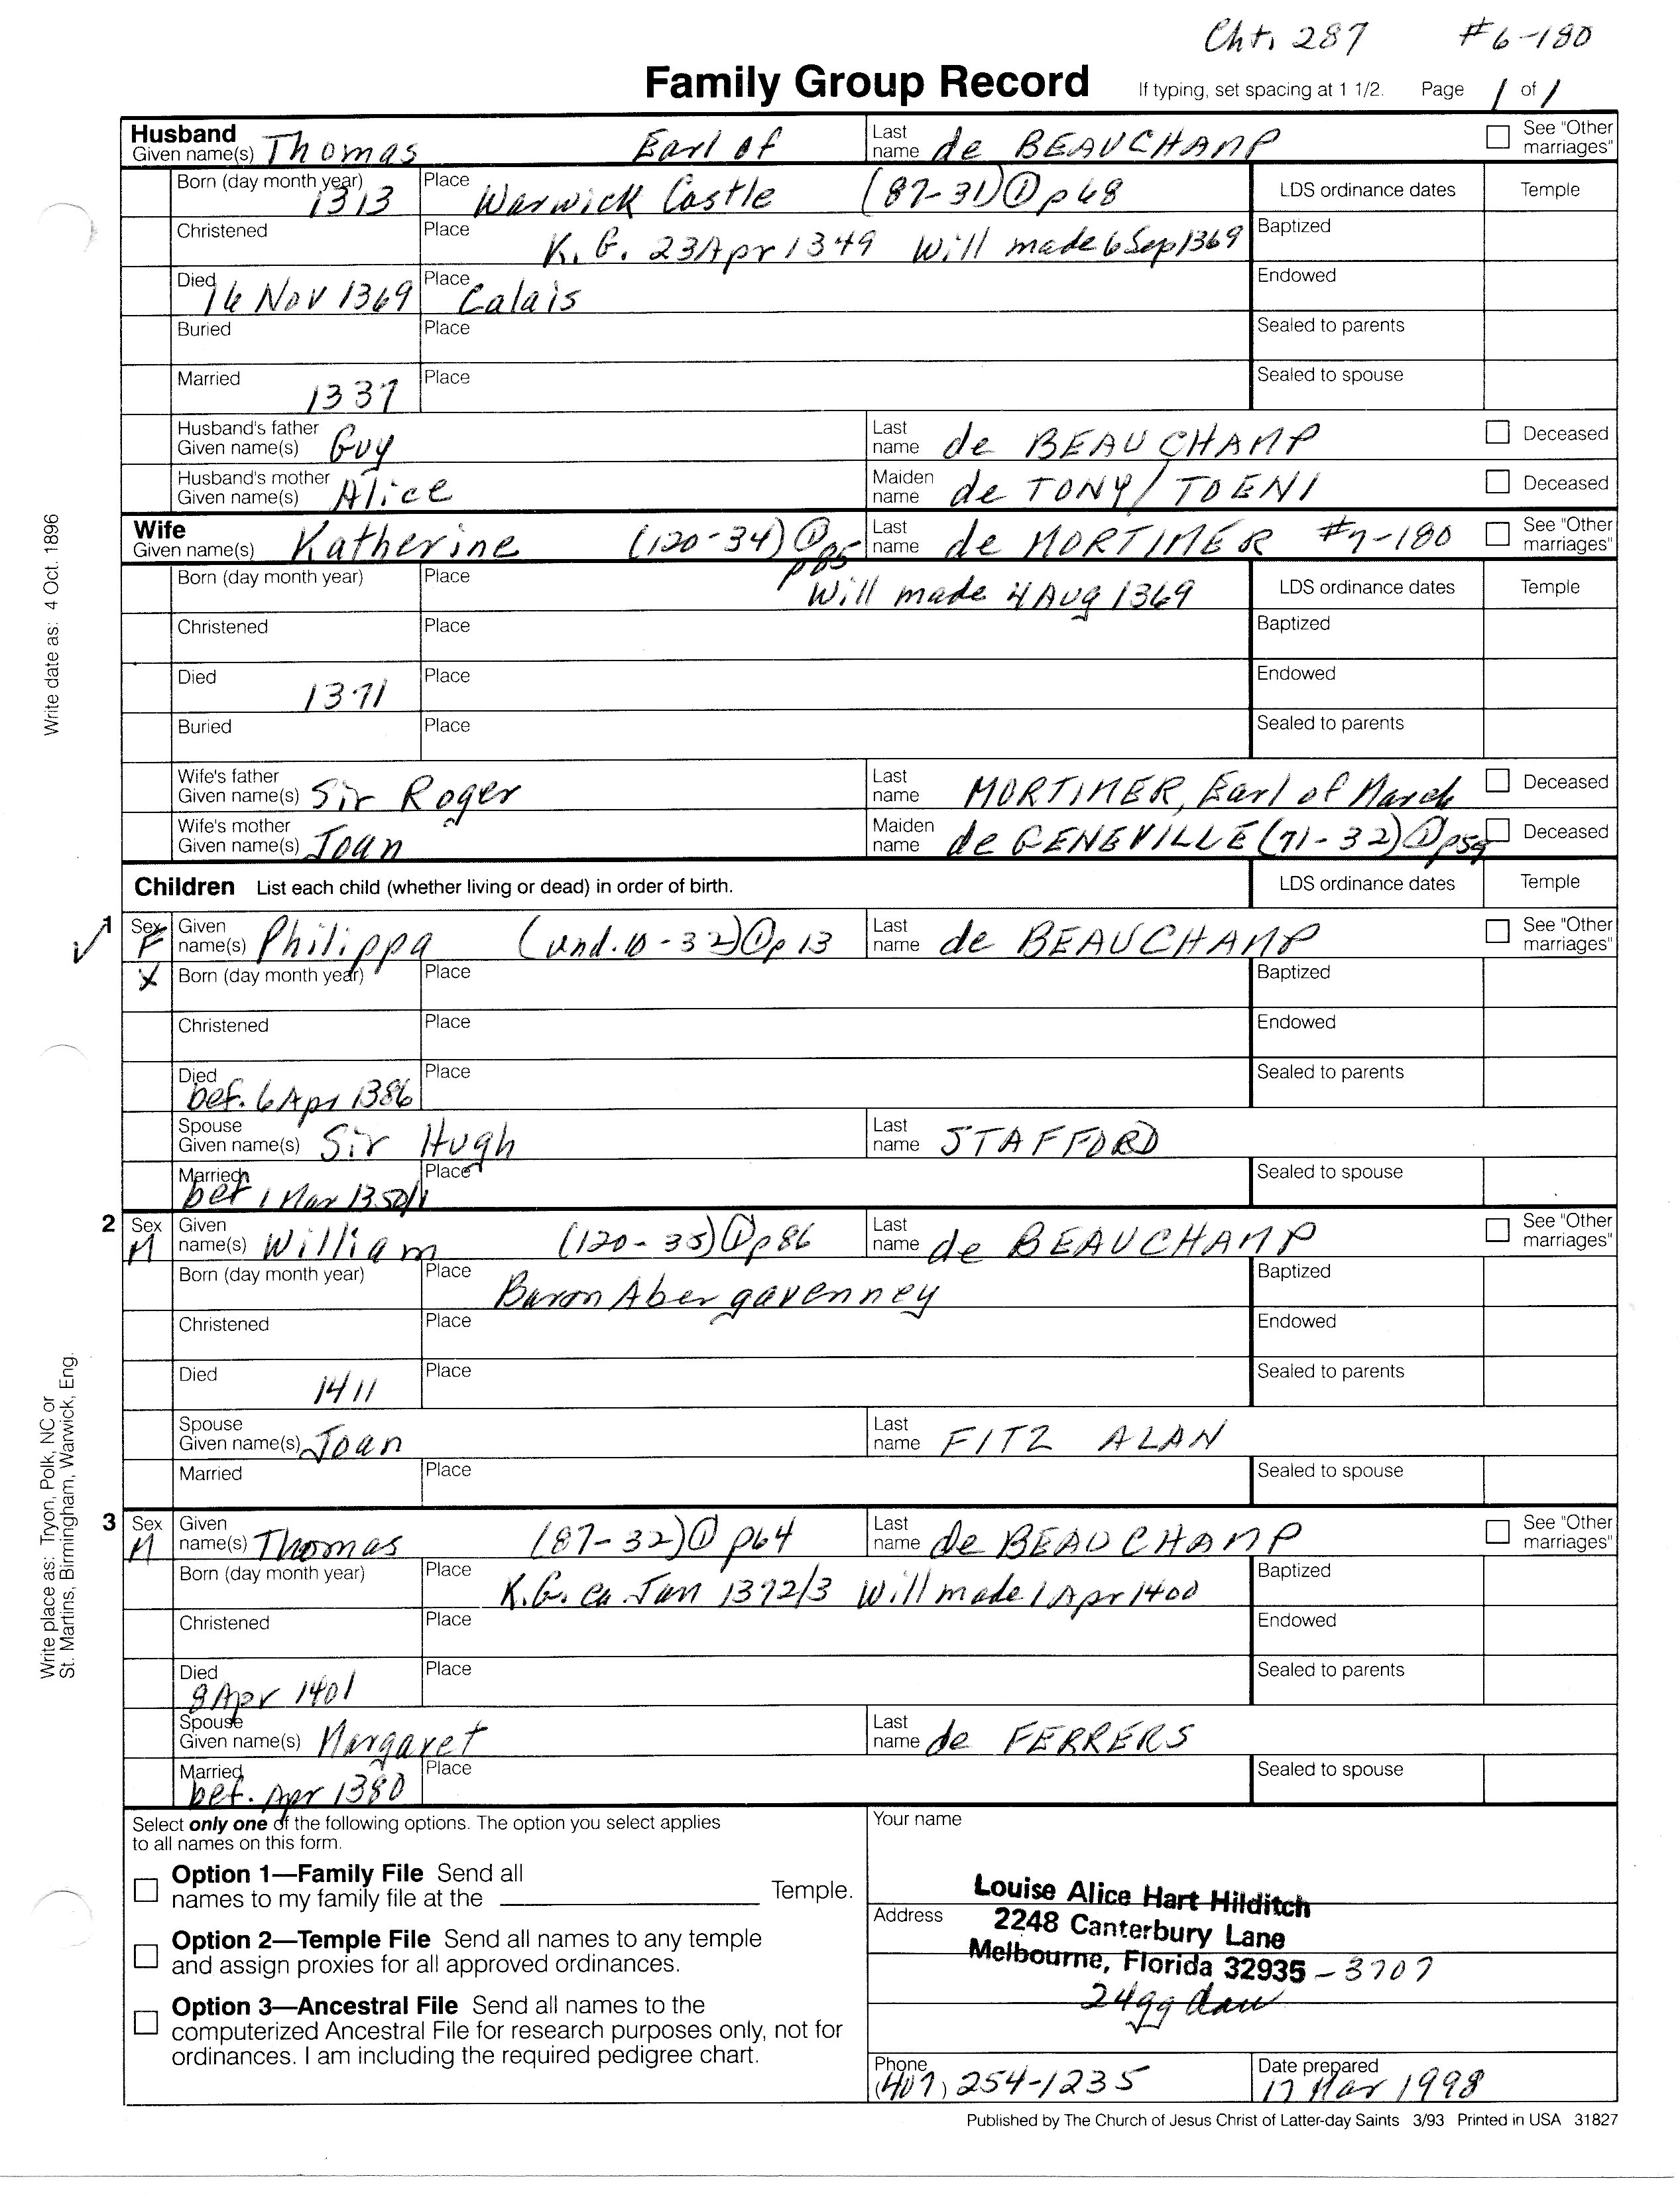 Cht. 287 #6-180
Family Group Record If typing, set spacing at 1 1/2. Page 1 of 1
Husband
Given name(s) Thomas Earl of Last name de BEAUCHAMP See "Other marriages"
Born (day month year) 1313 Place Warwick Castle (87-31)① p 68 LDS ordinance dates Temple
Christened Place K.G. 23 Apr 1349 Will made 6 Sep 1369 Baptized
Died 16 Nov 1369 Place Calais Endowed
Buried Place Sealed to parents
Married 1337 Place Sealed to spouse
Husband's father Given name(s) Guy Last name de BEAUCHAMP Deceased
Husband's mother Given name(s) Alice Maiden name de TONY/TOENI Deceased
Wife
Given name(s) Katherine (120-34)① p85 Last name de MORTIMER #7-180 See "Other marriages"
Born (day month year) Place Will made 4 Aug 1369 LDS ordinance dates Temple
Christened Place Baptized
Died 1371 Place Endowed
Buried Place Sealed to parents
Wife's father Given name(s) Sir Roger Last name MORTIMER, Earl of March Deceased
Wife's mother Given name(s) Joan Maiden name de GENEVILLE (71-32)① p59 Deceased
Children List each child (whether living or dead) in order of birth. LDS ordinance dates Temple
1 Sex F Given name(s) Philippa (und. 10-32)① p 13 Last name de BEAUCHAMP See "Other marriages"
X Born (day month year) Place Baptized
Christened Place Endowed
Died bef. 6 Apr 1386 Place Sealed to parents
Spouse Given name(s) Sir Hugh Last name STAFFORD
Married bef 1 Mar 1350/1 Place Sealed to spouse
2 Sex M Given name(s) William (120-35)① p 86 Last name de BEAUCHAMP See "Other marriages"
Born (day month year) Place Baron Abergavenney Baptized
Christened Place Endowed
Died 1411 Place Sealed to parents
Spouse Given name(s) Joan Last name FITZ ALAN
Married Place Sealed to spouse
3 Sex M Given name(s) Thomas (87-32)① p64 Last name de BEAUCHAMP See "Other marriages"
Born (day month year) Place K.G. ca Jan 1372/3 Will made 1 Apr 1400 Baptized
Christened Place Endowed
Died 8 Apr 1401 Place Sealed to parents
Spouse Given name(s) Margaret Last name de FERRERS
Married bef. Apr 1380 Place Sealed to spouse
Select only one of the following options. The option you select applies
to all names on this form.
Option 1—Family File Send all
names to my family file at the Temple.
Option 2—Temple File Send all names to any temple
and assign proxies for all approved ordinances.
Option 3—Ancestral File Send all names to the
computerized Ancestral File for research purposes only, not for
ordinances. I am including the required pedigree chart.
Your name
Louise Alice Hart Hilditch
Address 2248 Canterbury Lane
Melbourne, Florida 32935 - 3707
24gg
Phone (407) 254-1235 Date prepared 17 Mar 1998
Published by The Church of Jesus Christ of Latter-day Saints 3/93 Printed in USA 31827
Write date as: 4 Oct. 1896
Write place as: Tryon, Polk, NC or
St. Martins, Birmingham, Warwick, Eng.